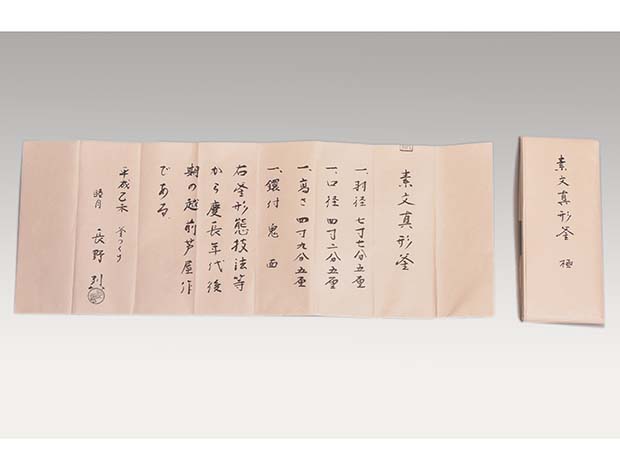 素文真形釜 極
素文真形釜
一、羽径 七寸七分五厘
一、口径 四寸二分五厘
一、高さ 四寸九分五厘
一、鐶付 鬼面
右釜形態技法等
から慶長年代後
期の越前芦屋作
である。
平成乙未 釜つくり
睦月 長野烈